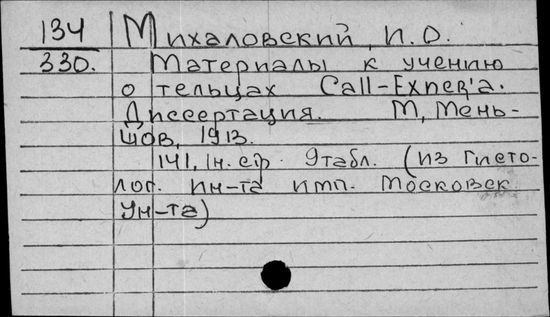 134 Михаловский, И.О.
330. Материалы к учению
о тельцах Call-Exner'a.
Диссертация. М, Мень-
шов, 1913.
141, 1н. стр. 9табл. (из Гисто-
лог. ин-та имп. Московск
Ун-та)